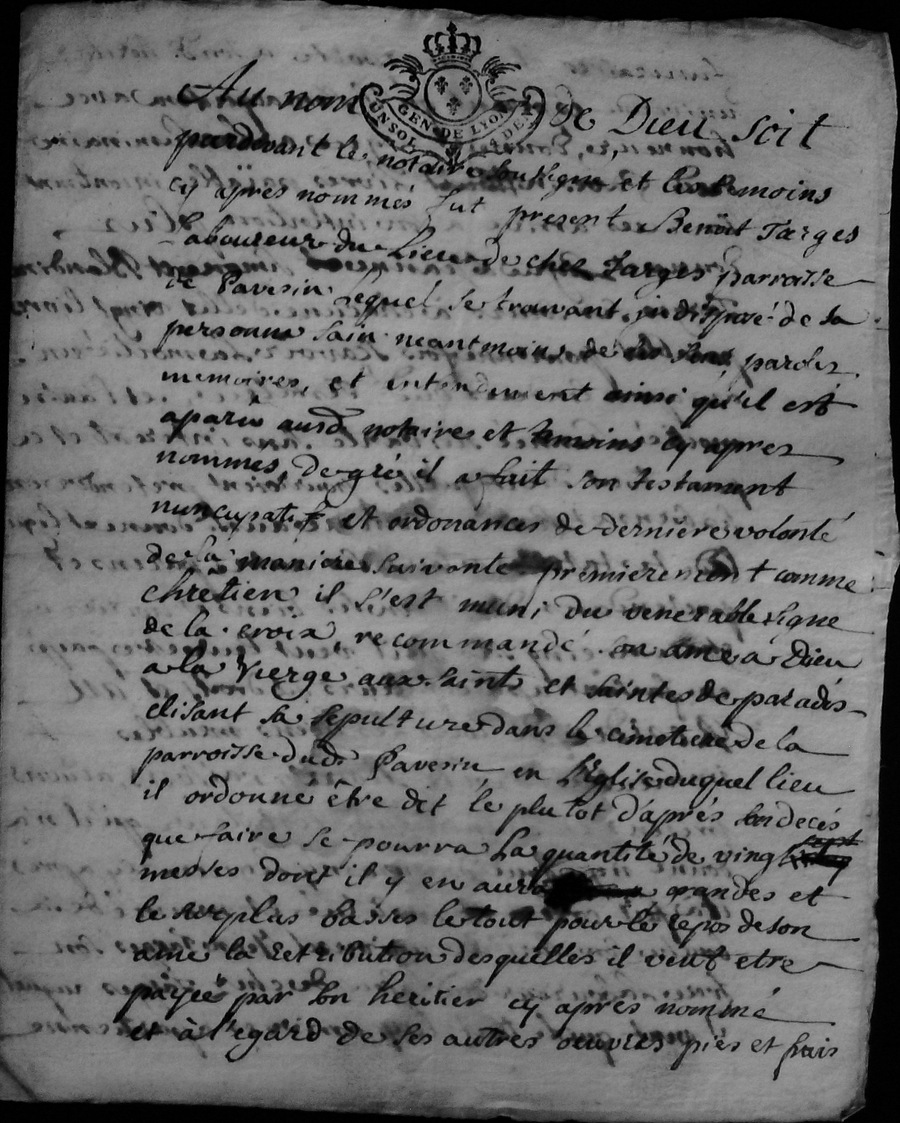 Au nom de Dieu soit
GEN. DE LYON
UN SOL DEX
pardevant le notaire soussigne et les temoins
cy apres nommés fut présent Benoit Jarges
Laboureur du Lieu de chez Jarges parroisse
de Pavesin lequel se trouvant indisposé de sa
personne sain neantmoins de ses sens, paroles
memoires, et entendement ainsi qu'il est
aparu ausd notaire et temoins cy apres
nommés, de gré il a fait son testament
nuncupatif et ordonances de derniere volonté
de la maniere suivante premierement comme
chretien il s'est muni du venerable signe
de la croix, recommandé sa ame a Dieu
a la Vierge aux saints et saintes de paradis
elisant sa sepulture dans le cimetiere de la
parroisse dudt Pavesin en l'Eglise duquel lieu
il ordonne être dit le plutot d'aprés son decés
que faire se pourra la quantité de vingt sept
messes dont il y en aura grandes et
le surplus basses le tout pour le repos de son
ame la retribution desquelles il veut etre
payée par son heritier cy après nommé
et à l'egard de ses autres oeuvres pies et frais